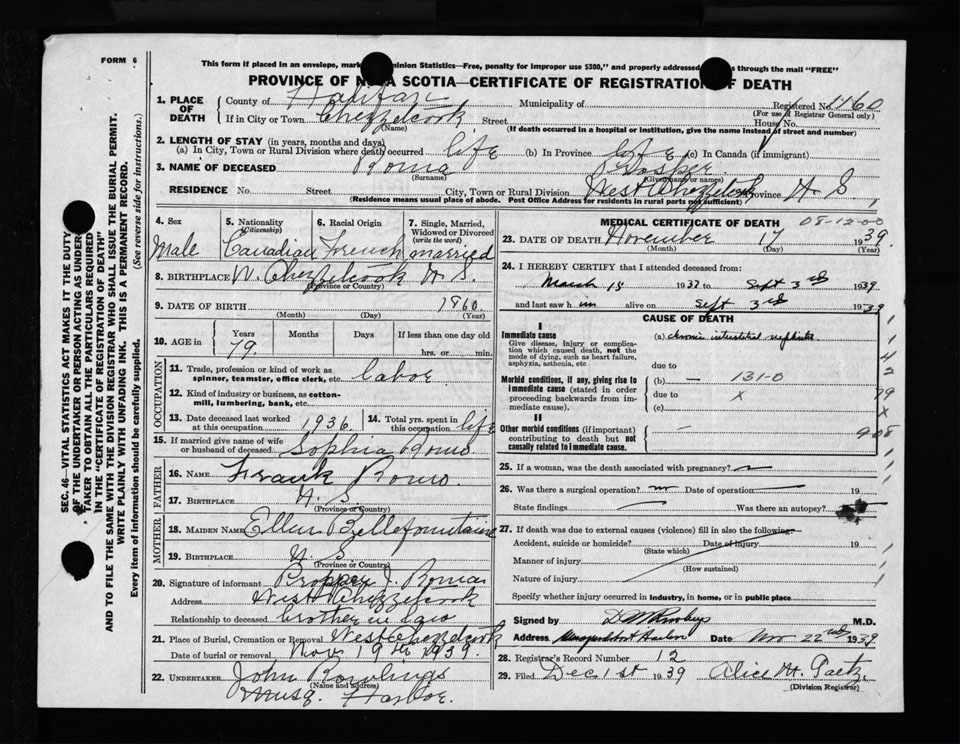 FORM 6
This form if placed in an envelope, mar minion Statistics—Free, penalty for improper use $300," and properly addressed s through the mail "FREE"
PROVINCE OF N A SCOTIA—CERTIFICATE OF REGISTRATION OF DEATH
1. PLACE OF DEATH County of Halifax Municipality of Registered No. 4160
(For use of Registrar General only)
If in City or Town Chezzetcook Street House No.
(Name) (If death occurred in a hospital or institution, give the name instead of street and number)
2. LENGTH OF STAY (in years, months and days)
(a) In City, Town or Rural Division where death occurred life (b) In Province life (c) In Canada (if immigrant)
3. NAME OF DECEASED Roma
(Surname) (Given name or names)
RESIDENCE No. Street City, Town or Rural Division West Chezzetcook Province N S
(Residence means usual place of abode. Post Office Address for residents in rural parts not sufficient)
4. Sex Male
5. Nationality (Citizenship) Canadian
6. Racial Origin French
7. Single, Married, Widowed or Divorced (write the word) married
8. BIRTHPLACE W. Chezzetcook N S.
(Province or Country)
9. DATE OF BIRTH 1860
(Month) (Day) (Year)
10. AGE in Years Months Days If less than one day old
79. hrs. or min.
OCCUPATION
11. Trade, profession or kind of work as spinner, teamster, office clerk, etc. Labor
12. Kind of industry or business, as cotton-mill, lumbering, bank, etc.
13. Date deceased last worked at this occupation 1936.
14. Total yrs. spent in this occupation life
15. If married give name of wife or husband of deceased Sophia Romo
FATHER
16. NAME Frank Romo.
17. BIRTHPLACE N. S.
(Province or Country)
MOTHER
18. MAIDEN NAME Ellen Bellefountaine
19. BIRTHPLACE N. S
(Province or Country)
20. Signature of informant J. Romas
Address West Chezzetcook
Relationship to deceased brother in law
21. Place of Burial, Cremation or Removal West Chezzetcook
Date of burial or removal Nov 19th 1939.
22. UNDERTAKER John Rowlings
(Name and address)
Musq. Harbor.
MEDICAL CERTIFICATE OF DEATH 08-12-00
23. DATE OF DEATH November 17 1939.
(Month) (Day) (Year)
24. I HEREBY CERTIFY that I attended deceased from:
March 15 1937 to Sept 3rd 1939
and last saw him alive on Sept 3rd 1939
CAUSE OF DEATH
I
Immediate cause (a) chronic interstitial nephritis
Give disease, injury or complication which caused death, not the mode of dying, such as heart failure, asphyxia, asthenia, etc
due to
Morbid conditions, if any, giving rise to immediate cause (stated in order proceeding backwards from immediate cause).
(b) — 131-0
due to x
(c)
II
Other morbid conditions (if important) contributing to death but not causally related to immediate cause.
1
42
79
x
908
25. If a woman, was the death associated with pregnancy?
26. Was there a surgical operation? no Date of operation 19
State findings Was there an autopsy?
27. If death was due to external causes (violence) fill in also the following:
Accident, suicide or homicide? Date of injury 19
(State which)
Manner of injury
(How sustained)
Nature of injury
Specify whether injury occurred in industry, in home, or in public place
Signed by M.D.
Address Musquodoboit Harbor Date Nov 22nd 1939
28. Registrar's Record Number 12
29. Filed Dec 1st 1939 Alice M. Paetz
(Division Registrar)
SEC. 46—VITAL STATISTICS ACT MAKES IT THE DUTY OF THE UNDERTAKER OR PERSON ACTING AS UNDERTAKER TO OBTAIN ALL THE PARTICULARS REQUIRED IN THE "CERTIFICATE OF REGISTRATION OF DEATH" AND TO FILE THE SAME WITH THE DIVISION REGISTRAR WHO SHALL ISSUE THE BURIAL PERMIT.
WRITE PLAINLY WITH UNFADING INK. THIS IS A PERMANENT RECORD.
Every item of information should be carefully supplied. (See reverse side for instructions.)